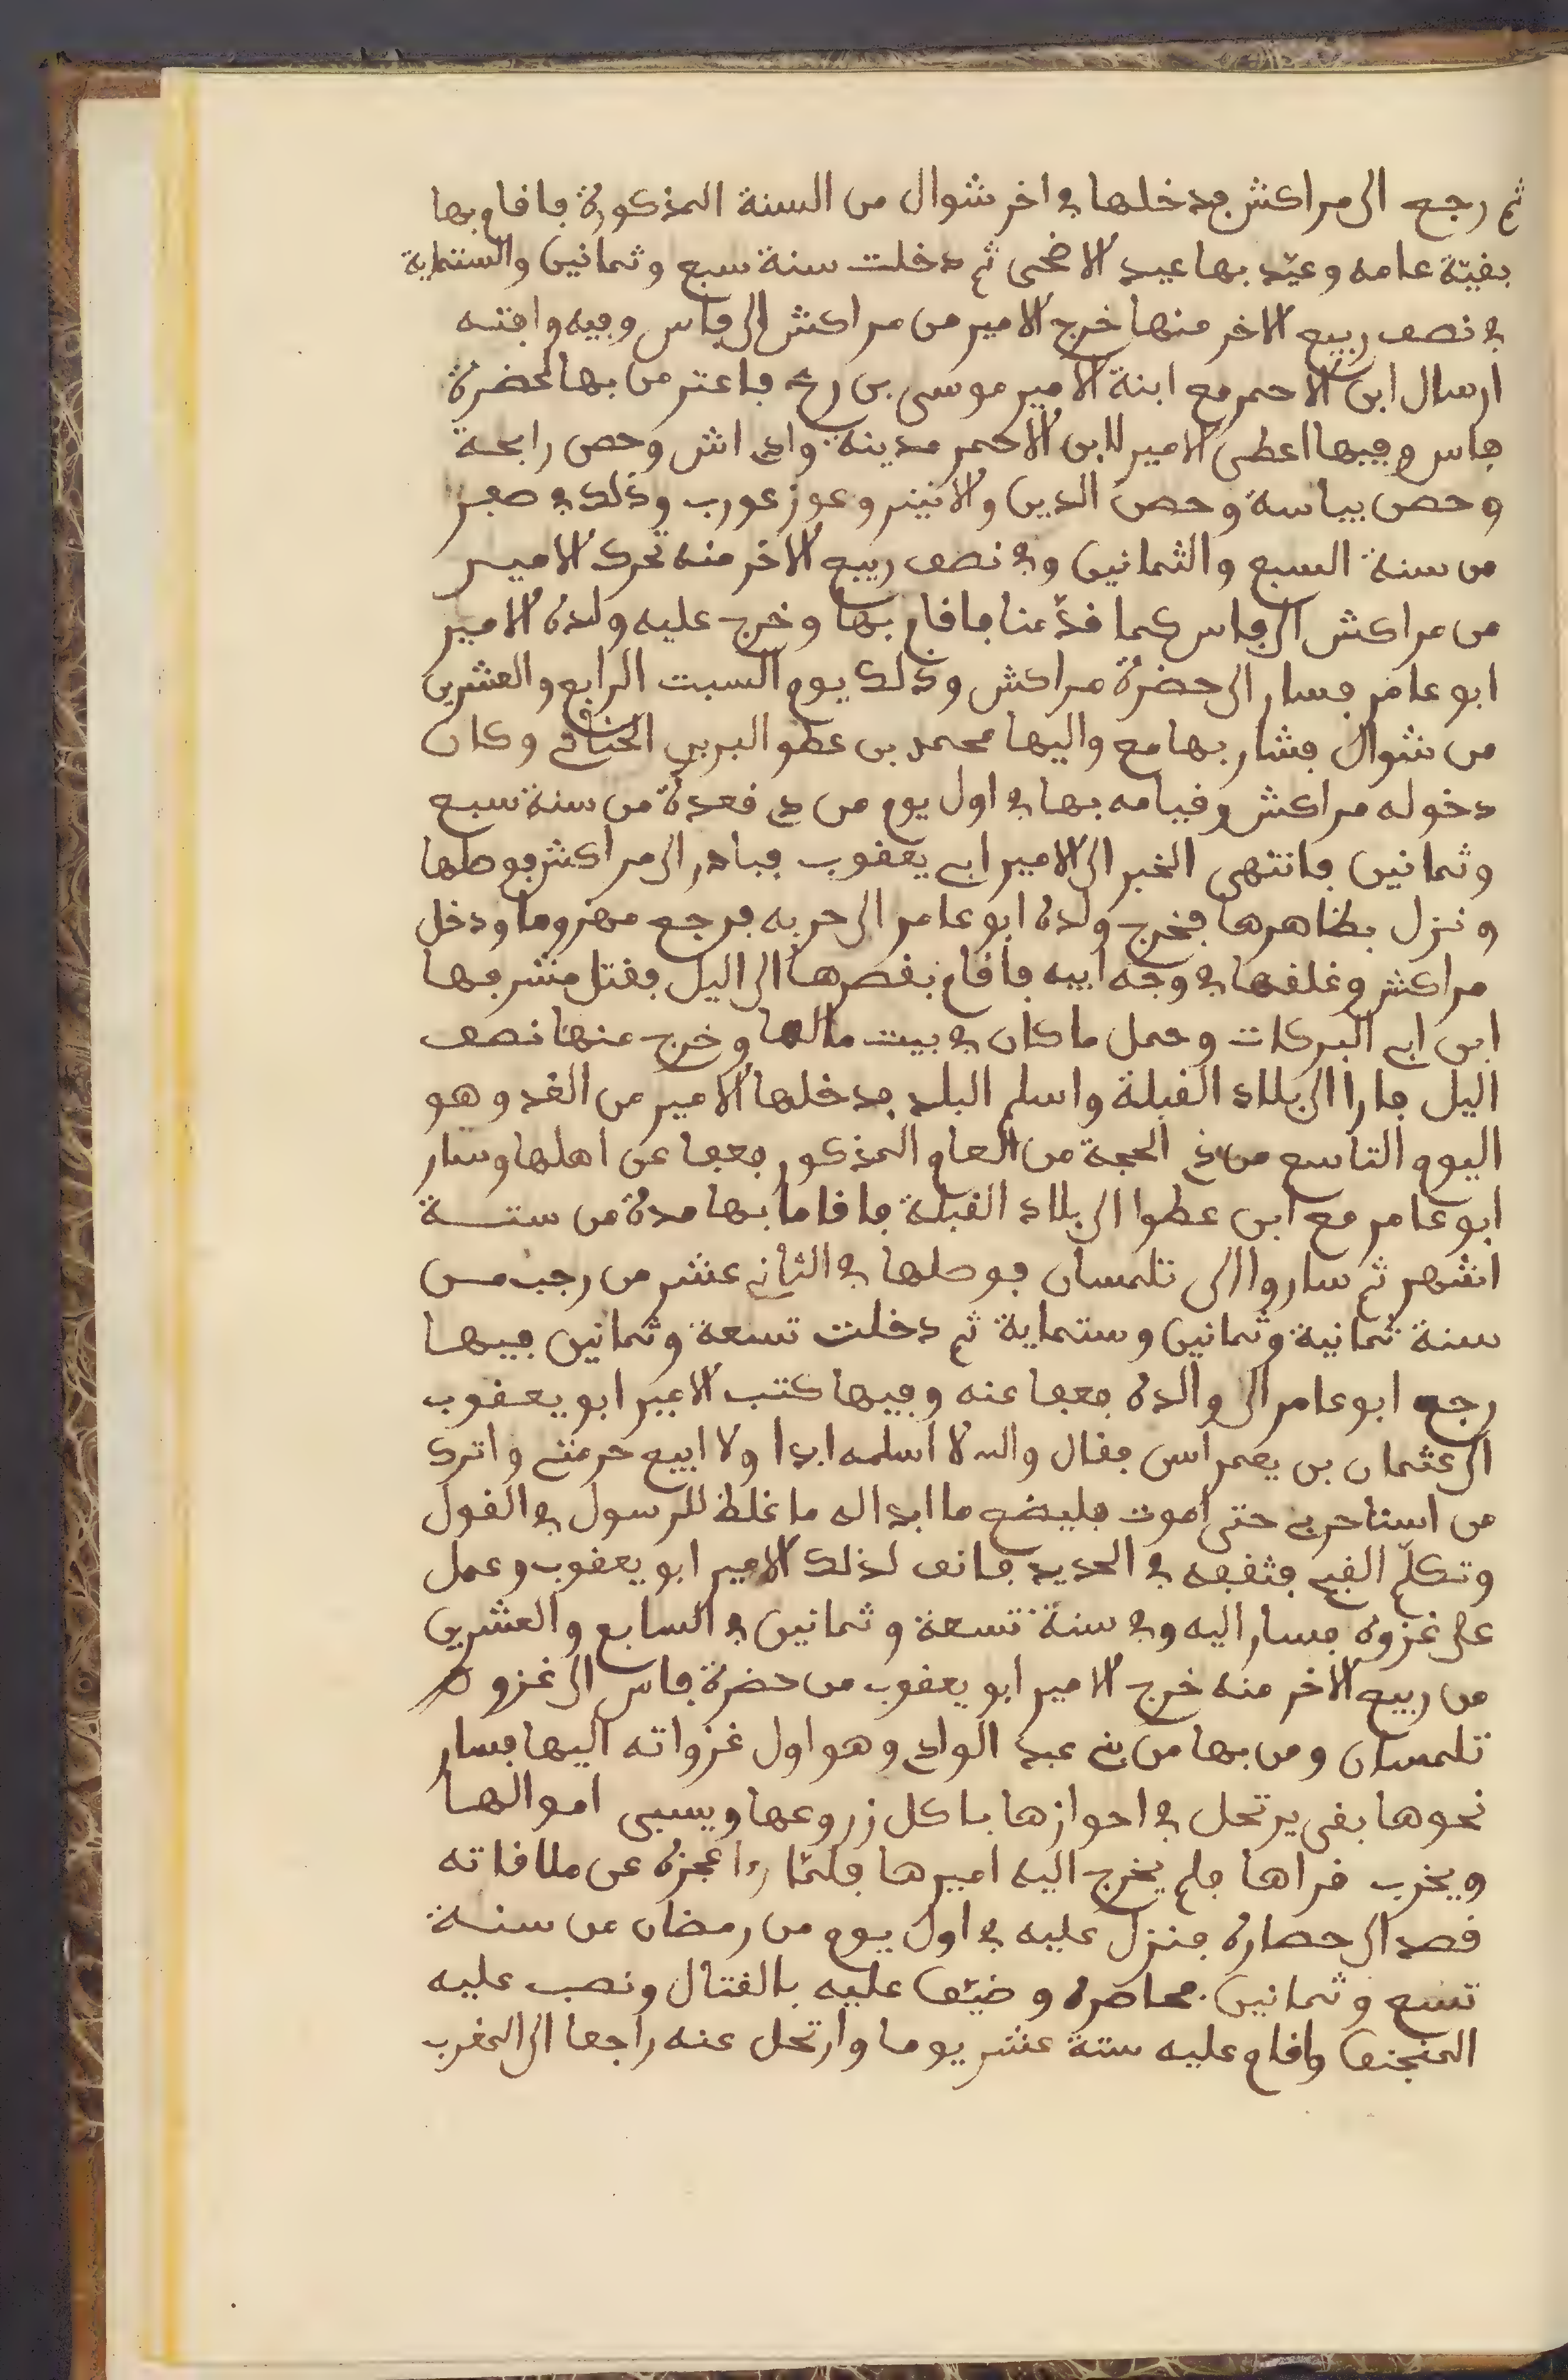 ثم رجع الى مراكش فدخلها في اخر شوال من السنة المذكورة فاقام بها
بقيّة عامه وعيّد بها عيد الاضحى ثم دخلت سنة سبع وثمانين والستماية
في نصف ربيع الاخر منها خرج الامير من مراكش الى فاس وفيه وافته
ارسال ابن الاحمر مع ابنة الامير موسى بن رح فاعتر من بها بحضرة
فاس وفيها اعطى الامير لابن الاحمر مدينة وادي اش وحصن رابحة
وحصن بياسة وحصن الدين والانيير وعوز عورب وذلك في صفر
من سنة السبع والثمانين وفي نصف ربيع الاخر منه تحرك الامير
من مراكش الى فاس كما قدّمنا فاقام بها وخرج عليه ولده الامير
ابو عامر فسار الى حضرة مراكش وذلك يوم السبت الرابع والعشرين
من شوال فشار بها مع واليها محمد بن عطو البربري الجناتي وكان
دخوله مراكش وقيامه بها في اول يوم من ذي قعدة من سنة سبع
وثمانين فانتهى الخبر الى الامير ابي يعقوب فبادر الى مراكش فوصلها
ونزل بظاهرها فخرج ولده ابو عامر الى حربه فرجع مهزوما ودخل
مراكش وغلقها في وجه ابيه فاقام بقصرها الى اليل فقتل مشرفها
ابن ابي البركات وحمل ما كان في بيت مالها وخرج عنها نصف
اليل فارا الى بلاد القبلة واسلم البلد فدخلها الامير من الغد وهو
اليوم التاسع من ذي الحجة من العام المذكور فعفا عن اهلها وسار
ابو عامر مع ابن عطوا الى بلاد القبلة فاقاما بها مدة من ستة
اشهر ثم ساروا الى تلمسان فوصلها في الثاني عشر من رجب من
سنة ثمانية وثمانين وستماية ثم دخلت تسعة وثمانين فيها
رجع ابو عامر الى والده فعفا عنه وفيها كتب الامير ابو يعقوب
الى عثمان بن يعمراسن فقال والله لا اسلمه ابدا ولا ابيع حرمتي واترك
من استاجرني حتى اموت فليضع ما ابدا له ما غلظ للرسول في القول
وتكلّم القبيح فثقفه في الحديد فانف لذلك الامير ابو يعقوب وعمل
على غزوه فسار اليه وفي سنة تسعة وثمانين في السابع والعشرين
من ربيع الاخر منه خرج الامير ابو يعقوب من حضرة فاس الى غزو
تلمسان ومن بها من بني عبد الوادي وهو اول غزواته اليها فسار
نحوها بقى يرتحل في احوازها ياكل زروعها ويسبى اموالها
ويخرب قراها فلم يخرج اليه اميرها فلمّا را عجزه عن ملاقاته
قصد الى حصاره فنزل عليه في اول يوم من رمضان من سنة
تسع وثمانين فحاصره وضيّق عليه بالقتال ونصب عليه
المنجنيق واقام عليه ستة عشر يوما وارتحل عنه راجعا الى المغرب